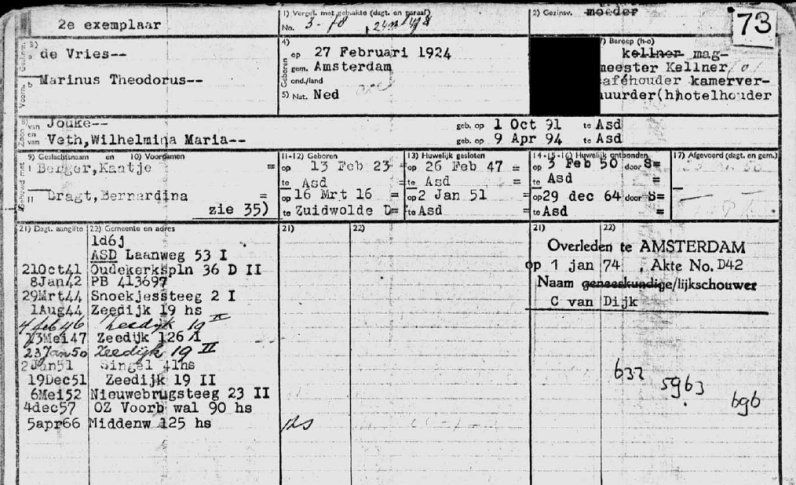 2e exemplaar
1) Vergil. met gehakte (dagt. en paraaf)
No. 3-78
2) Gezinsv. moeder
73
3)
de Vries--
Marinus Theodorus--
4)
Geboren
op 27 Februari 1924
gem. Amsterdam
end./land
5) Nat. Ned
7) Beroep (h-o)
kellner mag-
meester Kellner
caféhouder kamerver-
huurder(h)hotelhouder
van Jouke-- geb. op 1 Oct 91 te Asd
en van Veth, Wilhelmina Maria-- geb. op 9 Apr 94 te Asd
9) Geslachtsnaam en 10) Voornamen
11-12) Geboren
13) Huwelijk gesloten
14-15-16) Huwelijk ontbonden
17) Afgevoerd (dagt. en gem.)
I Berger, Kantje =
op 13 Feb 23 =
te Asd =
op 26 Feb 47 =
te Asd =
op 3 Feb 50 door S=
te Asd =
II Dragt, Bernardina =
zie 35)
op 16 Mrt 16 =
te Zuidwolde D=
op 2 Jan 51 =
te Asd =
op 29 dec 64 door S=
te Asd =
21) Dagt. aangifte
22) Gemeente en adres
21)
22)
21)
22)
1d6j
ASD Laanweg 53 I
21Oct41 Oudekerkspln 36 D II
8Jan42 PB 413697
29Mrt44 Snoekjessteeg 2 I
1Aug44 Zeedijk 19 hs
4 feb 46 Zeedijk 19 II
23Mei47 Zeedijk 126 I
23 Jan 50 Zeedijk 19 II
2Jan51 Singel 41hs
19Dec51 Zeedijk 19 II
6Mei52 Nieuwebrugsteeg 23 II
4dec57 OZ Voorb wal 90 hs
5apr66 Middenw 125 hs
Overleden te AMSTERDAM
op 1 jan 74, Akte No. D42
Naam geneeskundige/lijkschouwer
C van Dijk
632
5963
696